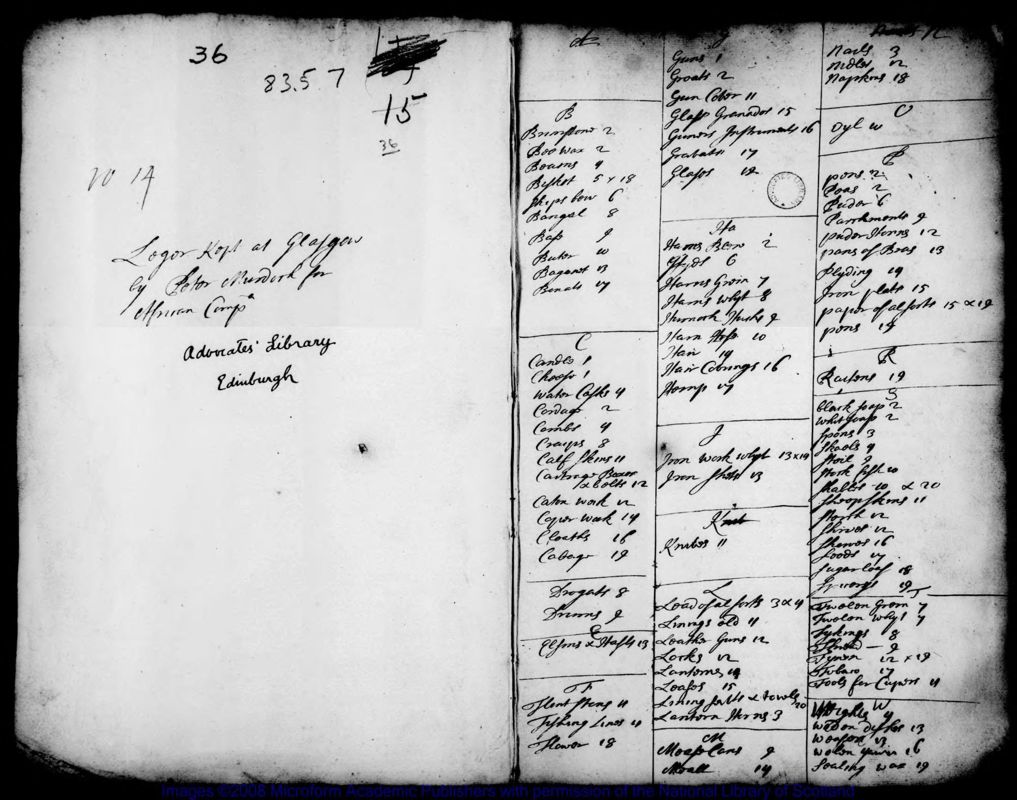 36
83.5 7
15
36
No 14
Legor Kept at Glasgow
by Peter Murdoch for
Affrican Compa
Advocates' Library
Edinburgh
A
B
Brimstone 2
Bee wax 2
Beams 4
Bisket 5 x 18
Ships bow 6
Bangal 8
Bass 9
Buter 10
Baganet 13
C
Candls 1
Cheese 1
Water Casks 4
Cordage 2
Combs 4
Crasps 8
Calf Skins 11
Cartrage Boxes
& bolts 12
Caten work 12
Coper work 14
Cloaths 16
Cabage 19
Drogats 8
Drums 9
E
Elsons & Hafts 13
F
Flint Stons 11
Fishing Lines 11
Flower 18
g
Guns 1
Groats 2
Gun Cober 11
Glass Granados 15
Guners Instruments 16
Grabats 17
Glases 18
Ha
Harns Brow 2
Hyds 6
Harns Grein 7
Harns whyt 8
Hair 14
Hair Cobrings 16
Hemp 17
J
Iron work whyt 13 x 14
Iron Shott 13
K
Knives 11
L
Lead of al sorts 3 x 4
Linings old 11
Leather Guns 12
Locks 12
Lanterns 14
Leases 15
Lining salts & towels 20
Lantorn Horns 3
M
Meass Cans 9
Meall 14
N
Nails 3
Nidles 12
Napkins 18
O
Oyl 10
P
pons 2
Peas 2
Puder 6
Parchments 9
puder Horns 12
pans of Bras 13
Plyding 14
Iron plats 15
paper of al sorts 15 & 19
pons 19
R
Raisens 19
S
black soap 2
whit soap 2
Spons 3
Skaols 4
Stiel 9
Stock fish 10
Shalbs 10 & 20
Sheepskins 11
Shoes 12
Skewes 16
Seeds 17
Sugar loaf 18
T
Twolen Grein 7
Twolen whyt 7
Tykings 8
Thried 9
Tynen 12 x 19
Tubaco 17
Tools for Cupers 11
W
Weights 4
Weden dishes 13
Weapons 13
Wolen yairn 16
Sealing wax 19
Images ©2008 Microform Academic Publishers with permission of the National Library of Scotland